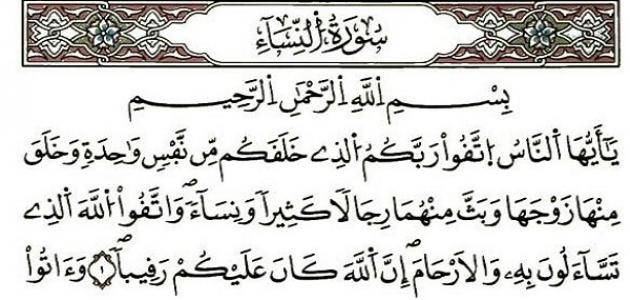 سُورَةُ النِّسَاءِ
بِسْمِ اِللَّهِ اِلرَّحْمَٰنِ اِلرَّحِيمِ
يَٰٓأَيُّهَا اَلنَّاسُ اُ۪تَّقُواْ رَبَّكُمُ اُلذِے خَلَقَكُم مِّن نَّفْسٖ وَٰحِدَةٖ وَخَلَقَ
مِنْهَا زَوْجَهَا وَبَثَّ مِنْهُمَا رِجَالاٗ كَثِيراٗ وَنِسَآءٗۖ وَاتَّقُواْ اُللَّهَ اَلذِے
تَسَّآءَلُونَ بِهِۦ وَالَارْحَامَۖ إِنَّ اَللَّهَ كَانَ عَلَيْكُمْ رَقِيباٗۖ ١ وَءَاتُواْ